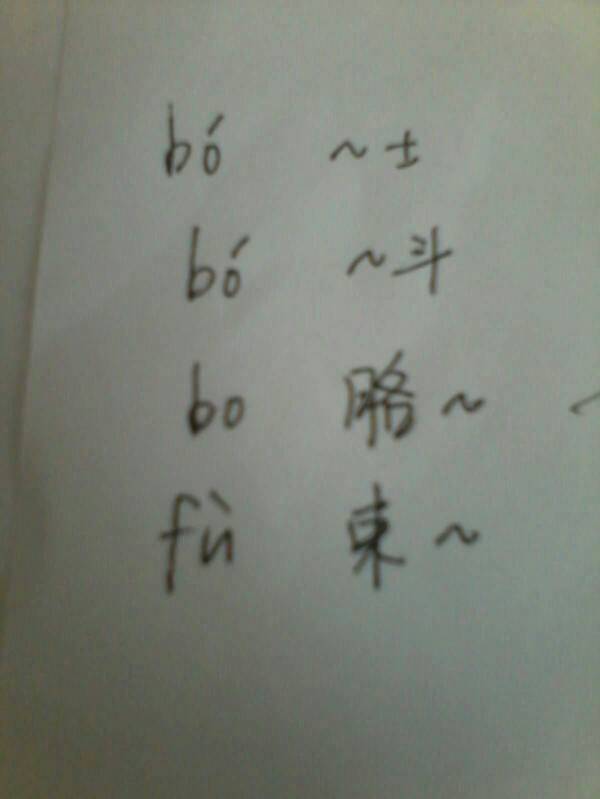 bó ～士
bó ～斗
bo 胳～
fù 束～